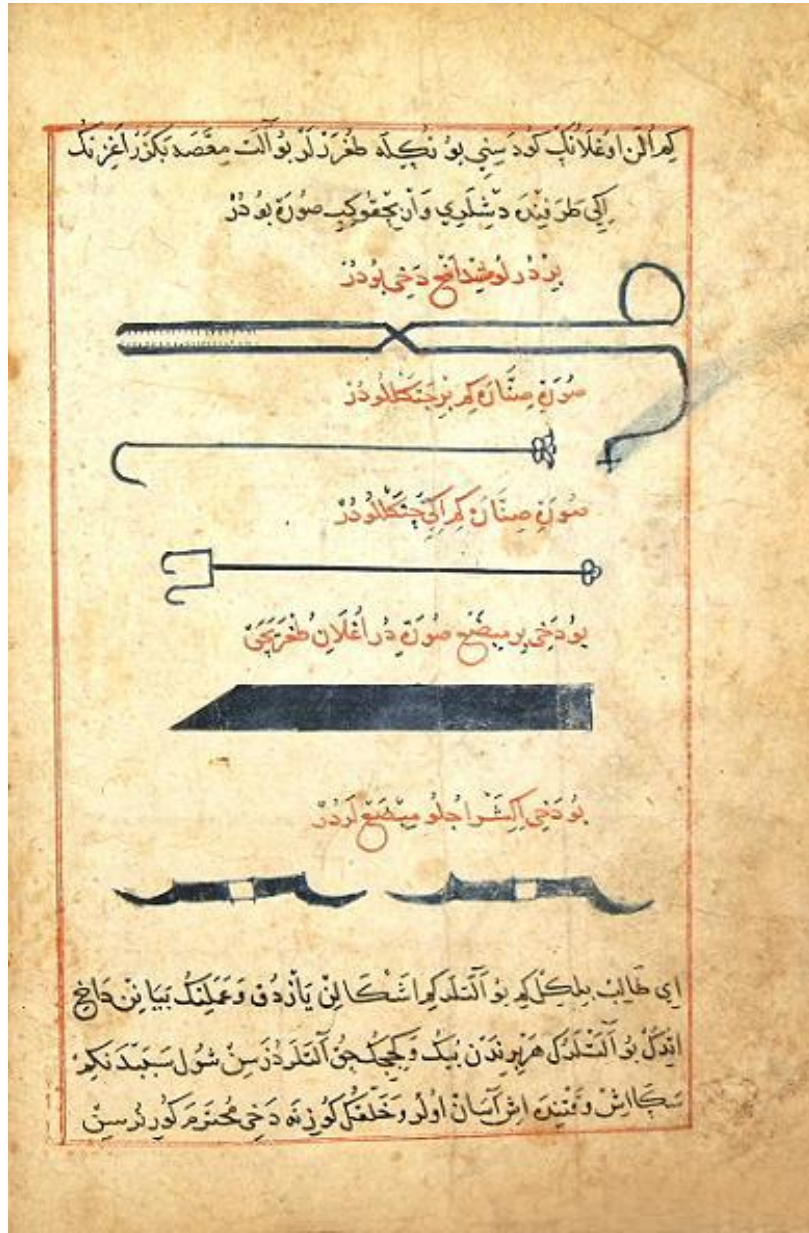 كم اُلن اوغلانك كودسني بو نكله طغررلر بو آلت مقصه بكزر اغزنك
اكي طرفنده دشلري وار بچقو كبي صورة بودر
بردرلو شداخ دخي بودر
صورة صناره كم بر چنكللودر
صورة صناره كم اكي چنكللودر
بو دخي بر مبضع صورة در اغلان طغريجق
بو دخي اكشر اجلو مبضعلردر
اي طالب بلكل كم بو آلتلر كم اشكالن يازدق و عملنك بيانن داخ
اتدك بو آلتلرك هر برندن بيك و كجيك چق آلتلر دزسن شول سببدنكم
سكا اش وقتنده اش آسان اولر و خلقك كوزنه دخي محترم كورنرسن